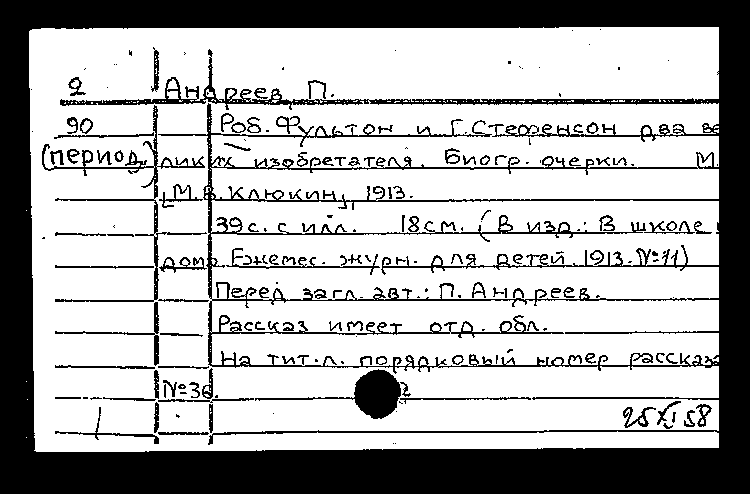 2 Андреев, П.
90 Роб. Фультон и Г. Стефенсон два ве
(период.) ликих изобретателя. Биогр. очерки. М.
[М.В. Клюкин], 1913.
39 с. с илл. 18 см. (В изд.: В школе
дома. Ежемес. журн. для детей. 1913. №11)
Перед загл. авт.: П. Андреев.
Рассказ имеет отд. обл.
На тит. л. порядковый номер рассказа
№36.
25 XI 58